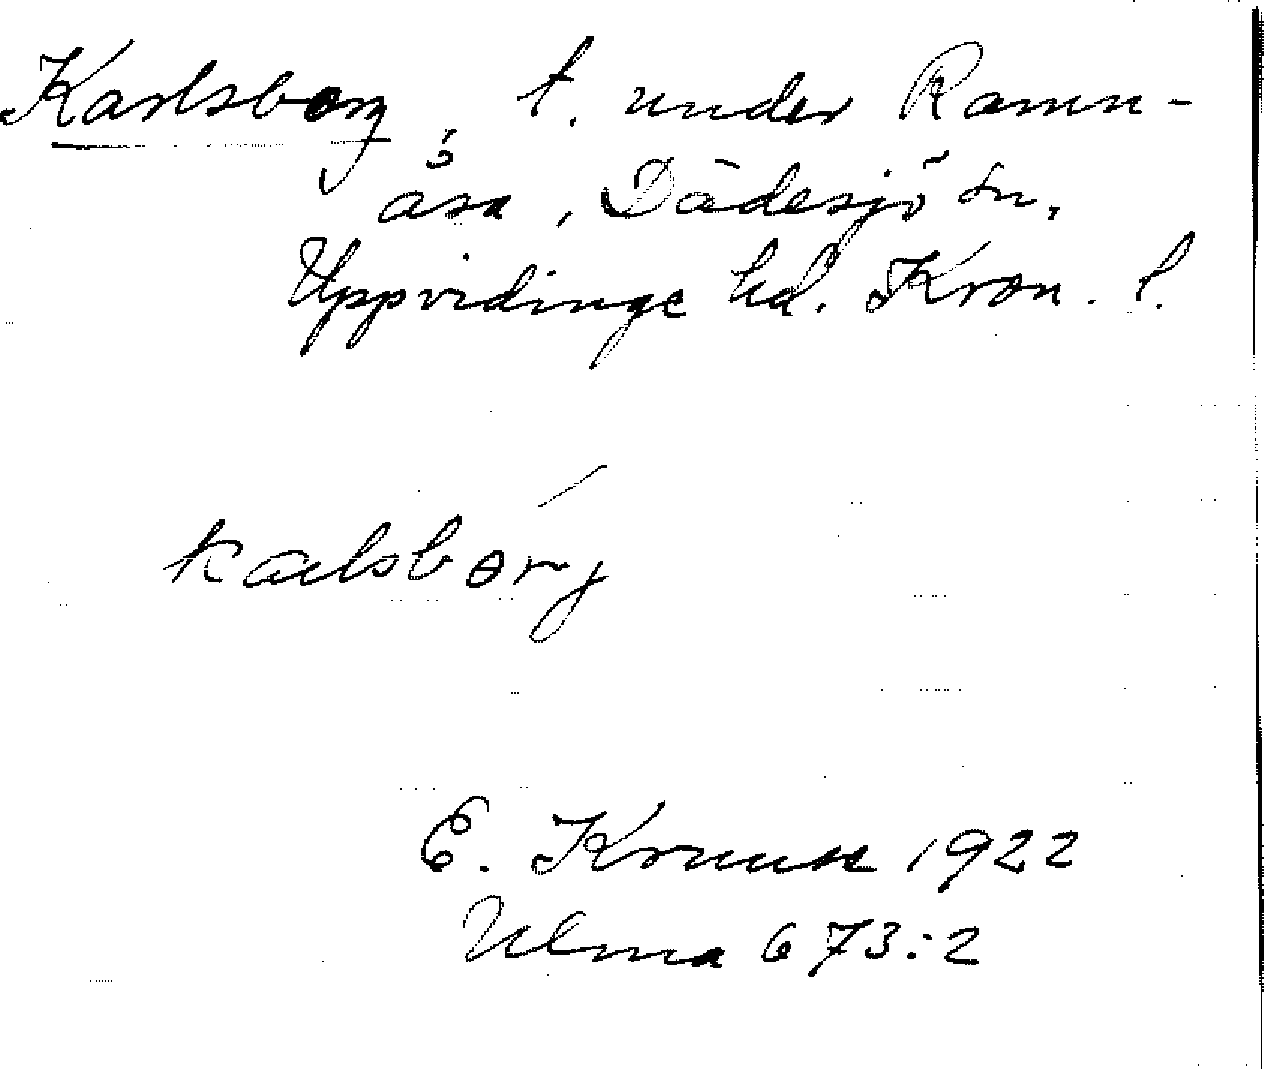 Karlsborg, t. under Ramn-
åsa, Dädesjö sn,
Uppvidinge hd. Kron. l.
kalsborj
E. Kruuse 1922
Ulma 673:2